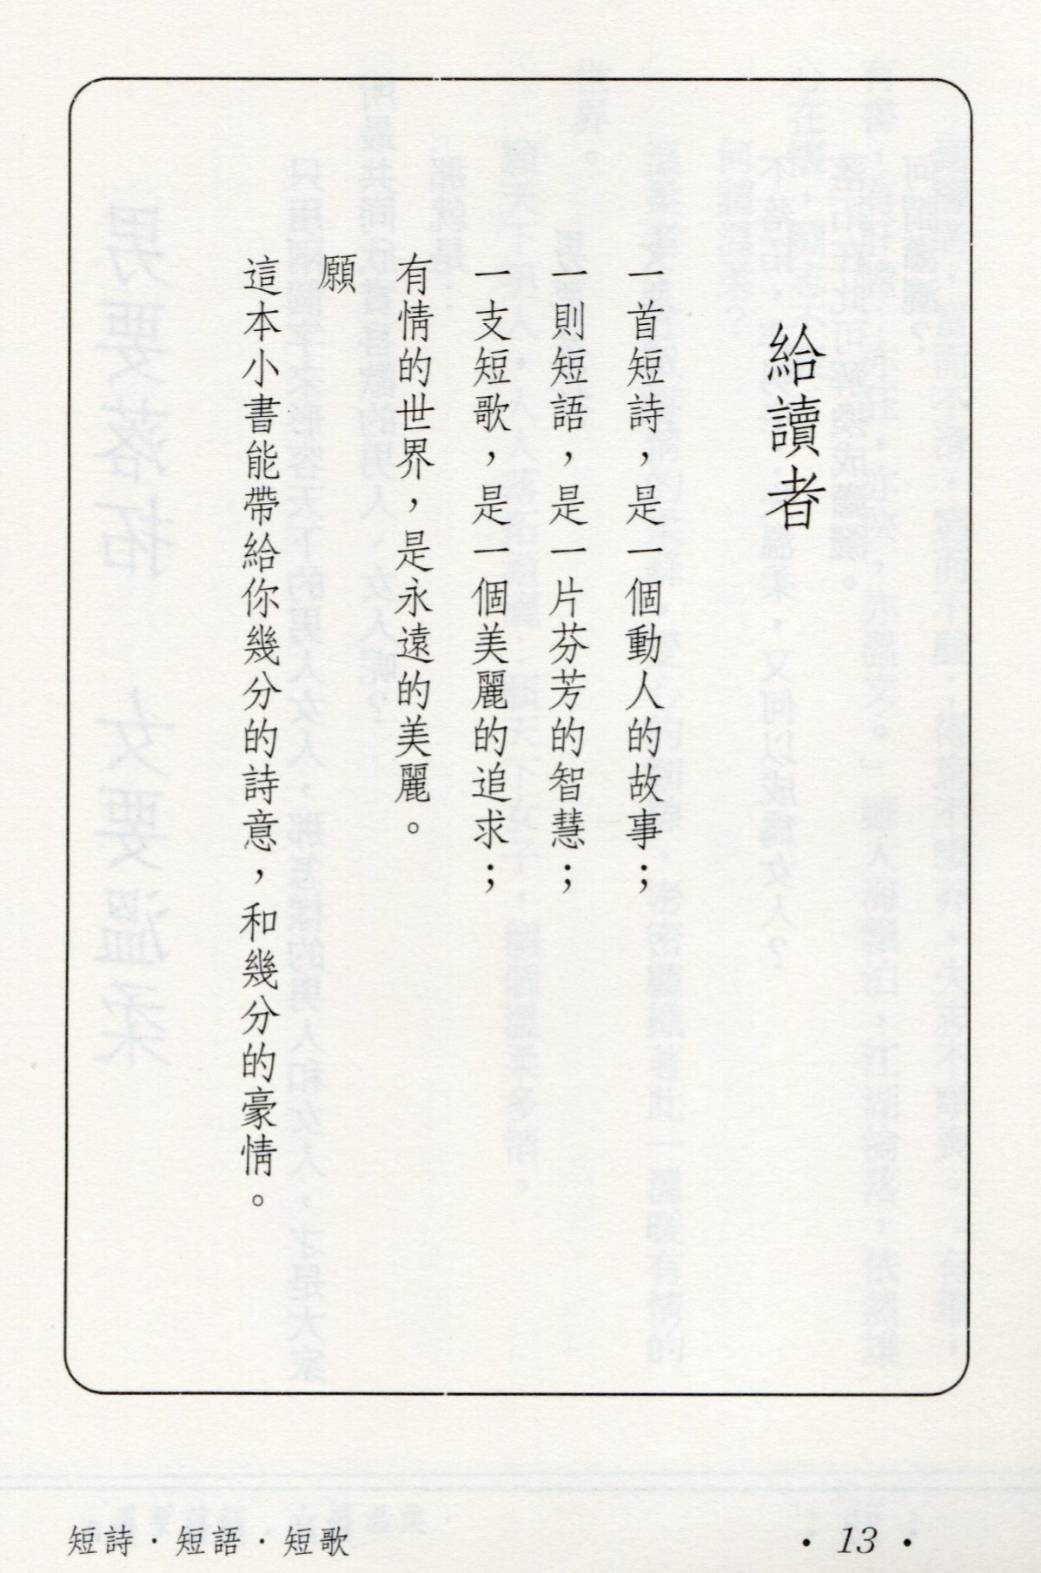 給讀者
一首短詩，是一個動人的故事；
一則短語，是一片芬芳的智慧；
一支短歌，是一個美麗的追求；
有情的世界，是永遠的美麗。
願
這本小書能帶給你幾分的詩意，和幾分的豪情。
短詩·短語·短歌
• 13 •